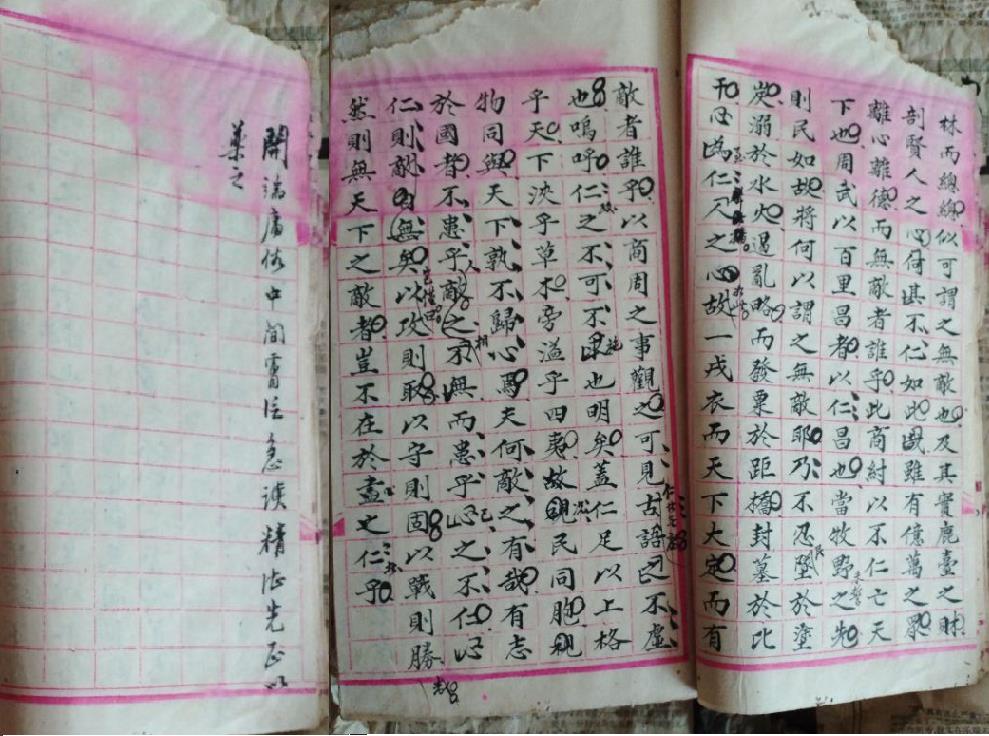 林而總總似可謂之無敵也及其實鹿臺之財
剖賢人之心何其不仁如此哉雖有億萬之眾
離心離德而無敵者誰乎此商紂以不仁亡天
下也周武以百里昌者以仁昌也當牧野之先
則民如故將何以謂之無敵耶乃不忍墜於塗
炭溺於水火遏亂略而發粟於距橋封墓於比
干心為仁人之心故一戎衣而天下大定而有
敵者誰乎以商周之事觀之可見古語之不虛
也嗚呼仁之不可不也明矣蓋仁足以上格
乎天下泱乎草木旁溢乎四夷故民同胞視
物同與天下孰不歸心焉夫何敵之有哉有志
於國者不患乎敵之不無而患乎心之不仁心
仁則敵自無矣以攻則取以守則固以戰則勝
然則無天下之敵者豈不在於盡之仁乎
開講庸俗中間當注急讀精此先正以
藥之